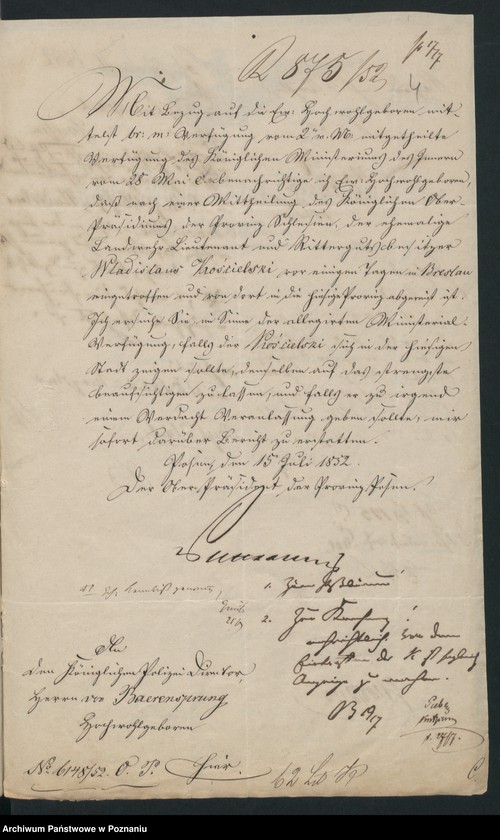 R 875/52
4
Mit Bezug auf die Ew: Hochwohlgeboren mit-
telst br: m: Verfügung vom 2ten v: M: mitgetheilte
Verfügung des Königlichen Ministeriums des Innern
vom 28 Mai c. benachrichtige ich Ew: Hochwohlgeboren,
daß nach einer Mittheilung des Königlichen Ober-
Präsidiums der Provinz Schlesien, der ehemalige
Landwehr Lieutenant und Rittergutsbesitzer
Wladislaus Kościelski, vor einigen Tagen in Breslau
eingetroffen und von dort in die hiesige Provinz abgereist ist.
Ich ersuche Sie im Sinne der allegirten Ministerial-
Verfügung, falls der Kościelski sich in der hiesigen
Stadt zeigen sollte, denselben auf das strengste
beaufsichtigen zu lassen, und falls er zu irgend
einem Verdacht Veranlassung geben sollte, mir
sofort darüber Bericht zu erstatten.
Posen, den 15 Juli 1852.
Der Ober-Präsident der Provinz Posen.
1.
2.
zu machen.
B 19/7
An
den Königlichen Polizei Director,
Herrn von Baerensprung
Hochwohlgeboren
Hier.
No 6148/52. O. P.
Archiwum Państwowe w Poznaniu
szukajwarchiwach.gov.pl